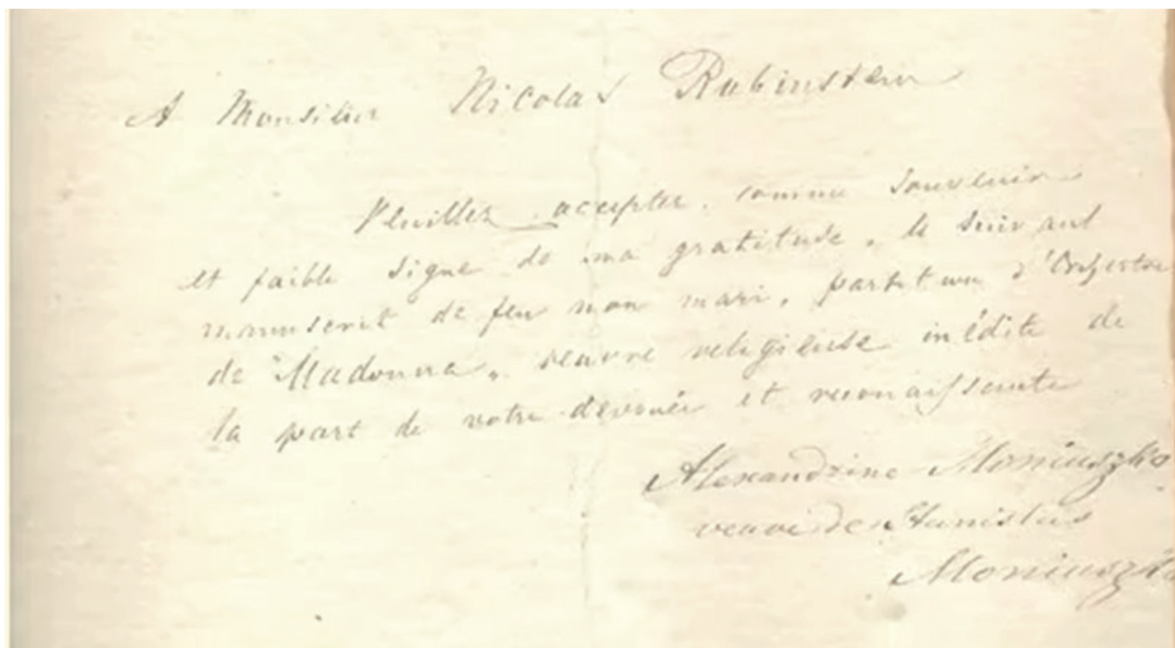 A Monsieur Nicolas Rubinstein
Veuillez accepter, comme souvenir
et faible signe de ma gratitude, le suivant
manuscrit de feu mon mari, partition d'Orchestre
de "Madonna", oeuvre religieuse inédite de
la part de votre dévouée et reconaissante
Alexandrine Moniuszko
veuve de Stanislas
Moniuszko